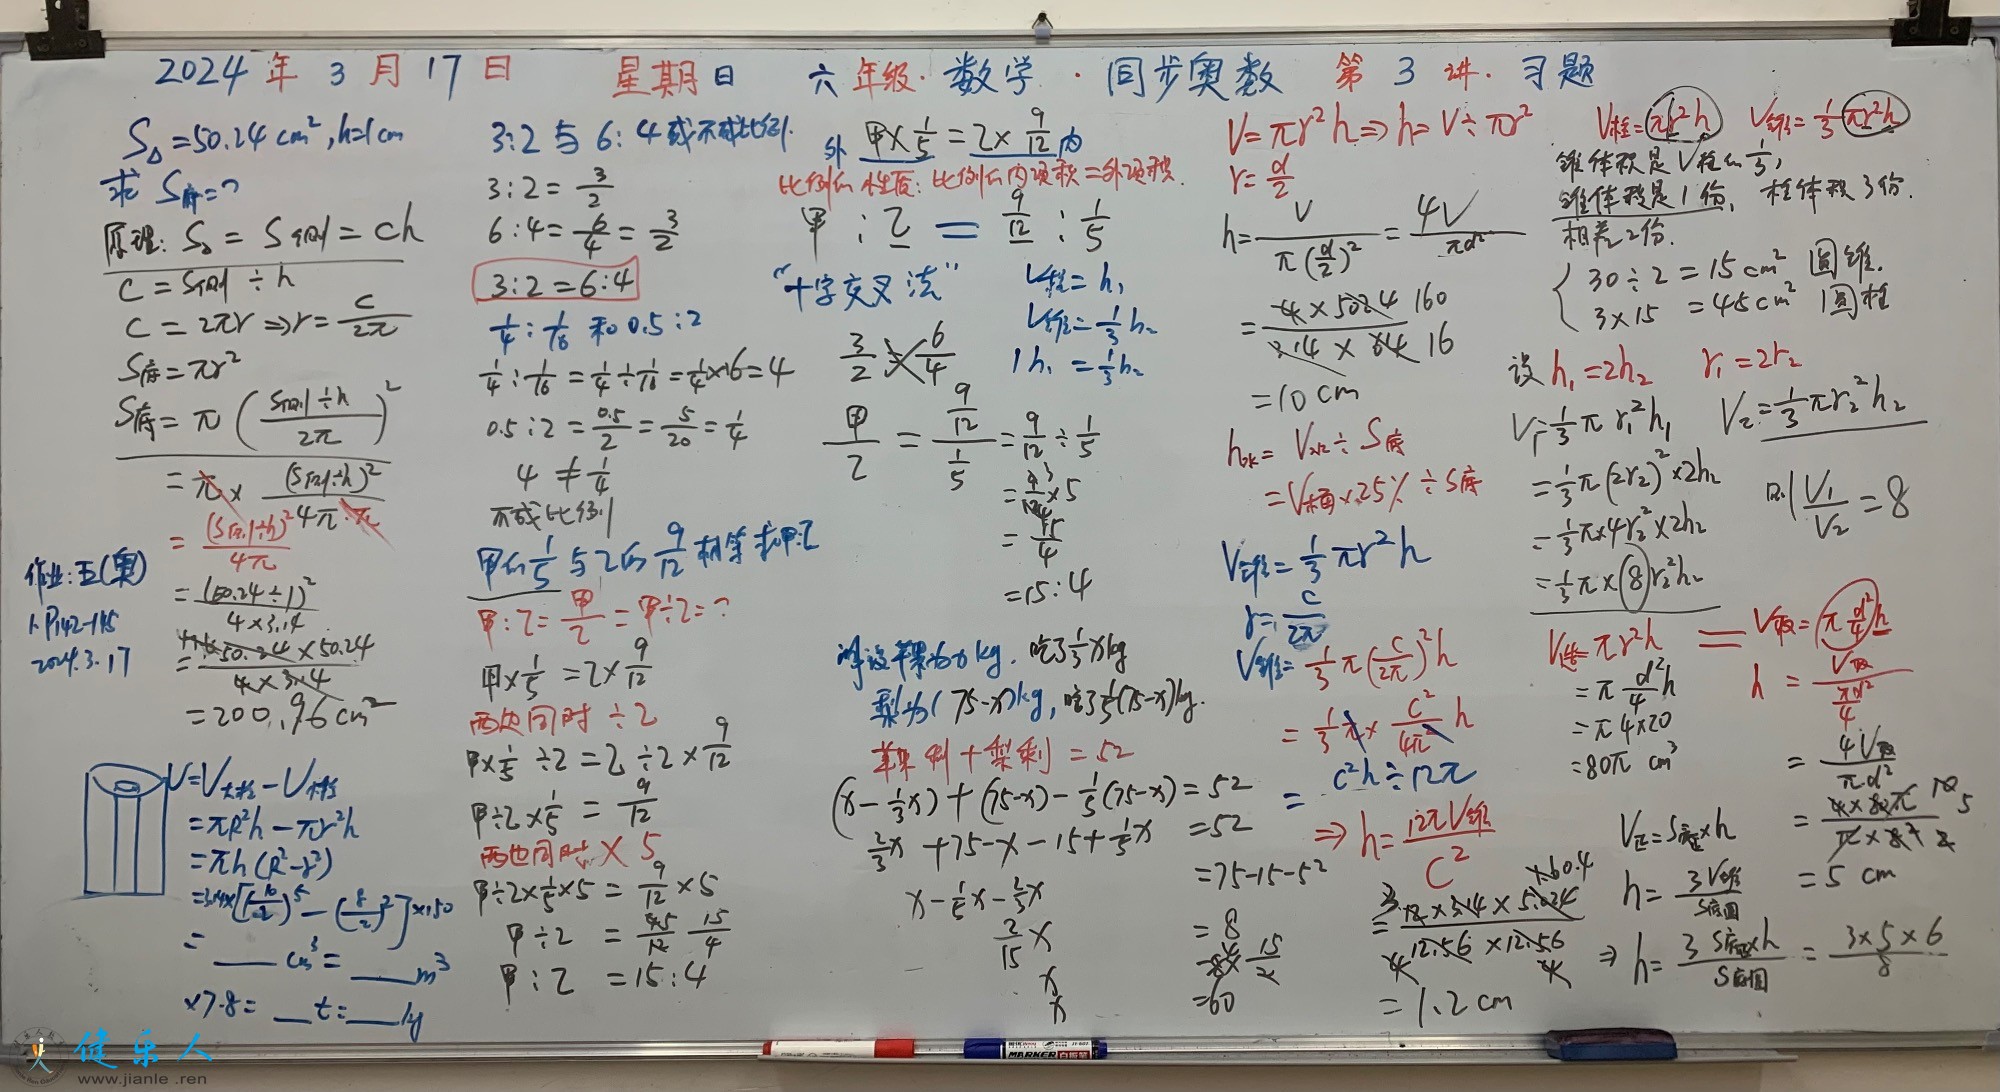 2024年3月17日 星期日 六年级·数学·同步奥数 第3讲·习题
S△=50.24cm²,h=1cm
求 S底=?
原理: S△ = S侧 = ch
C = S侧 ÷ h
C = 2πr ⇒ r = C/2π
S底 = πr²
S底 = π (S侧÷h / 2π)²
= π × (S侧÷h)² / 4π·π
= (S侧÷h)² / 4π
= (50.24÷1)² / 4×3.14
= 50.24×50.24 / 4×3.14
= 200.96cm²
作业:五(奥)
1.P142-145
2024.3.17
V=V大柱-V小柱
=πR²h-πr²h
=πh(R²-r²)
=3.14×[(10/2)⁵-(8/2)²]×150
= __ cm³ = __ m³
×7.8= __ t= __ kg
3:2 与 6:4 或不成比例.
3:2 = 3/2
6:4 = 6/4 = 3/2
3:2=6:4
1/4:1/16 和 0.5:2
1/4:1/16 = 1/4÷1/16 = 1/4×16 = 4
0.5:2 = 0.5/2 = 5/20 = 1/4
4 ≠ 1/4
不成比例
甲的1/5与乙的9/12相等求甲:乙
甲:乙=甲/乙=甲÷乙=?
甲×1/5=乙×9/12
两边同时÷乙
甲×1/5÷乙=乙÷乙×9/12
甲÷乙×1/5=9/12
两边同时×5
甲÷乙×1/5×5=9/12×5
甲÷乙 = 45/12 15/4
甲:乙 =15:4
外 甲×1/5=乙×9/12 内
比例的性质:比例的内项积=外项积.
甲:乙 = 9/12:1/5
“十字交叉法”
3/2 = 6/4
V柱=h₁
V锥=1/3h₂
1h₁=1/3h₂
甲/乙 = 9/12 / 1/5 = 9/12÷1/5
=9/12×5
=15/4
=15:4
解设苹果为xkg. 吃了1/3xkg
梨为(75-x)kg,吃了1/5(75-x)kg.
苹果剩+梨剩=52
(x-1/3x)+(75-x)-1/5(75-x)=52
2/3x+75-x-15+1/5x=52
x-1/5x-2/3x =75-15-52
2/15x =8
x =8×15/2
x =60
V=πr²h⇒h=V÷πr²
r=d/2
h= V/π(d/2)² = 4V/πd²
= 4×5024 160 / 3.14×64 16
=10cm
h水=V水÷S底
=V桶×25%÷S底
V锥=1/3πr²h
r=C/2π
V锥=1/3π(C/2π)²h
=1/3π×C²/4π²h
= C²h÷12π
⇒h=12πV锥/C²
= 12×3.14×5.024 / 12.56×12.56
=1.2cm
V柱=πr²h V锥=1/3πr²h
锥体积是V柱的1/3,
锥体积是1份, 柱体积3份.
相差2份.
30÷2=15cm² 圆锥.
3×15 =45cm² 圆柱
设 h₁=2h₂ r₁=2r₂
V₁=1/3πr₁²h₁ V₂=1/3πr₂²h₂
=1/3π(2r₂)²×2h₂
=1/3π×4r₂²×2h₂
=1/3π×8r₂²h₂
则 V₁/V₂=8
πr²h = V取=πd²/4h
=πd²/4h
=π4×20
=80π cm³
h = V取 / πd²/4
= 4V取/πd²
= 4×80π 10 5 / π×8 2
=5cm
×h
h=3V锥/S底圆
⇒h=3 ×h/S底圆 = 3×5×6/8
MARKER 白板笔
健乐人
www.jianle.ren